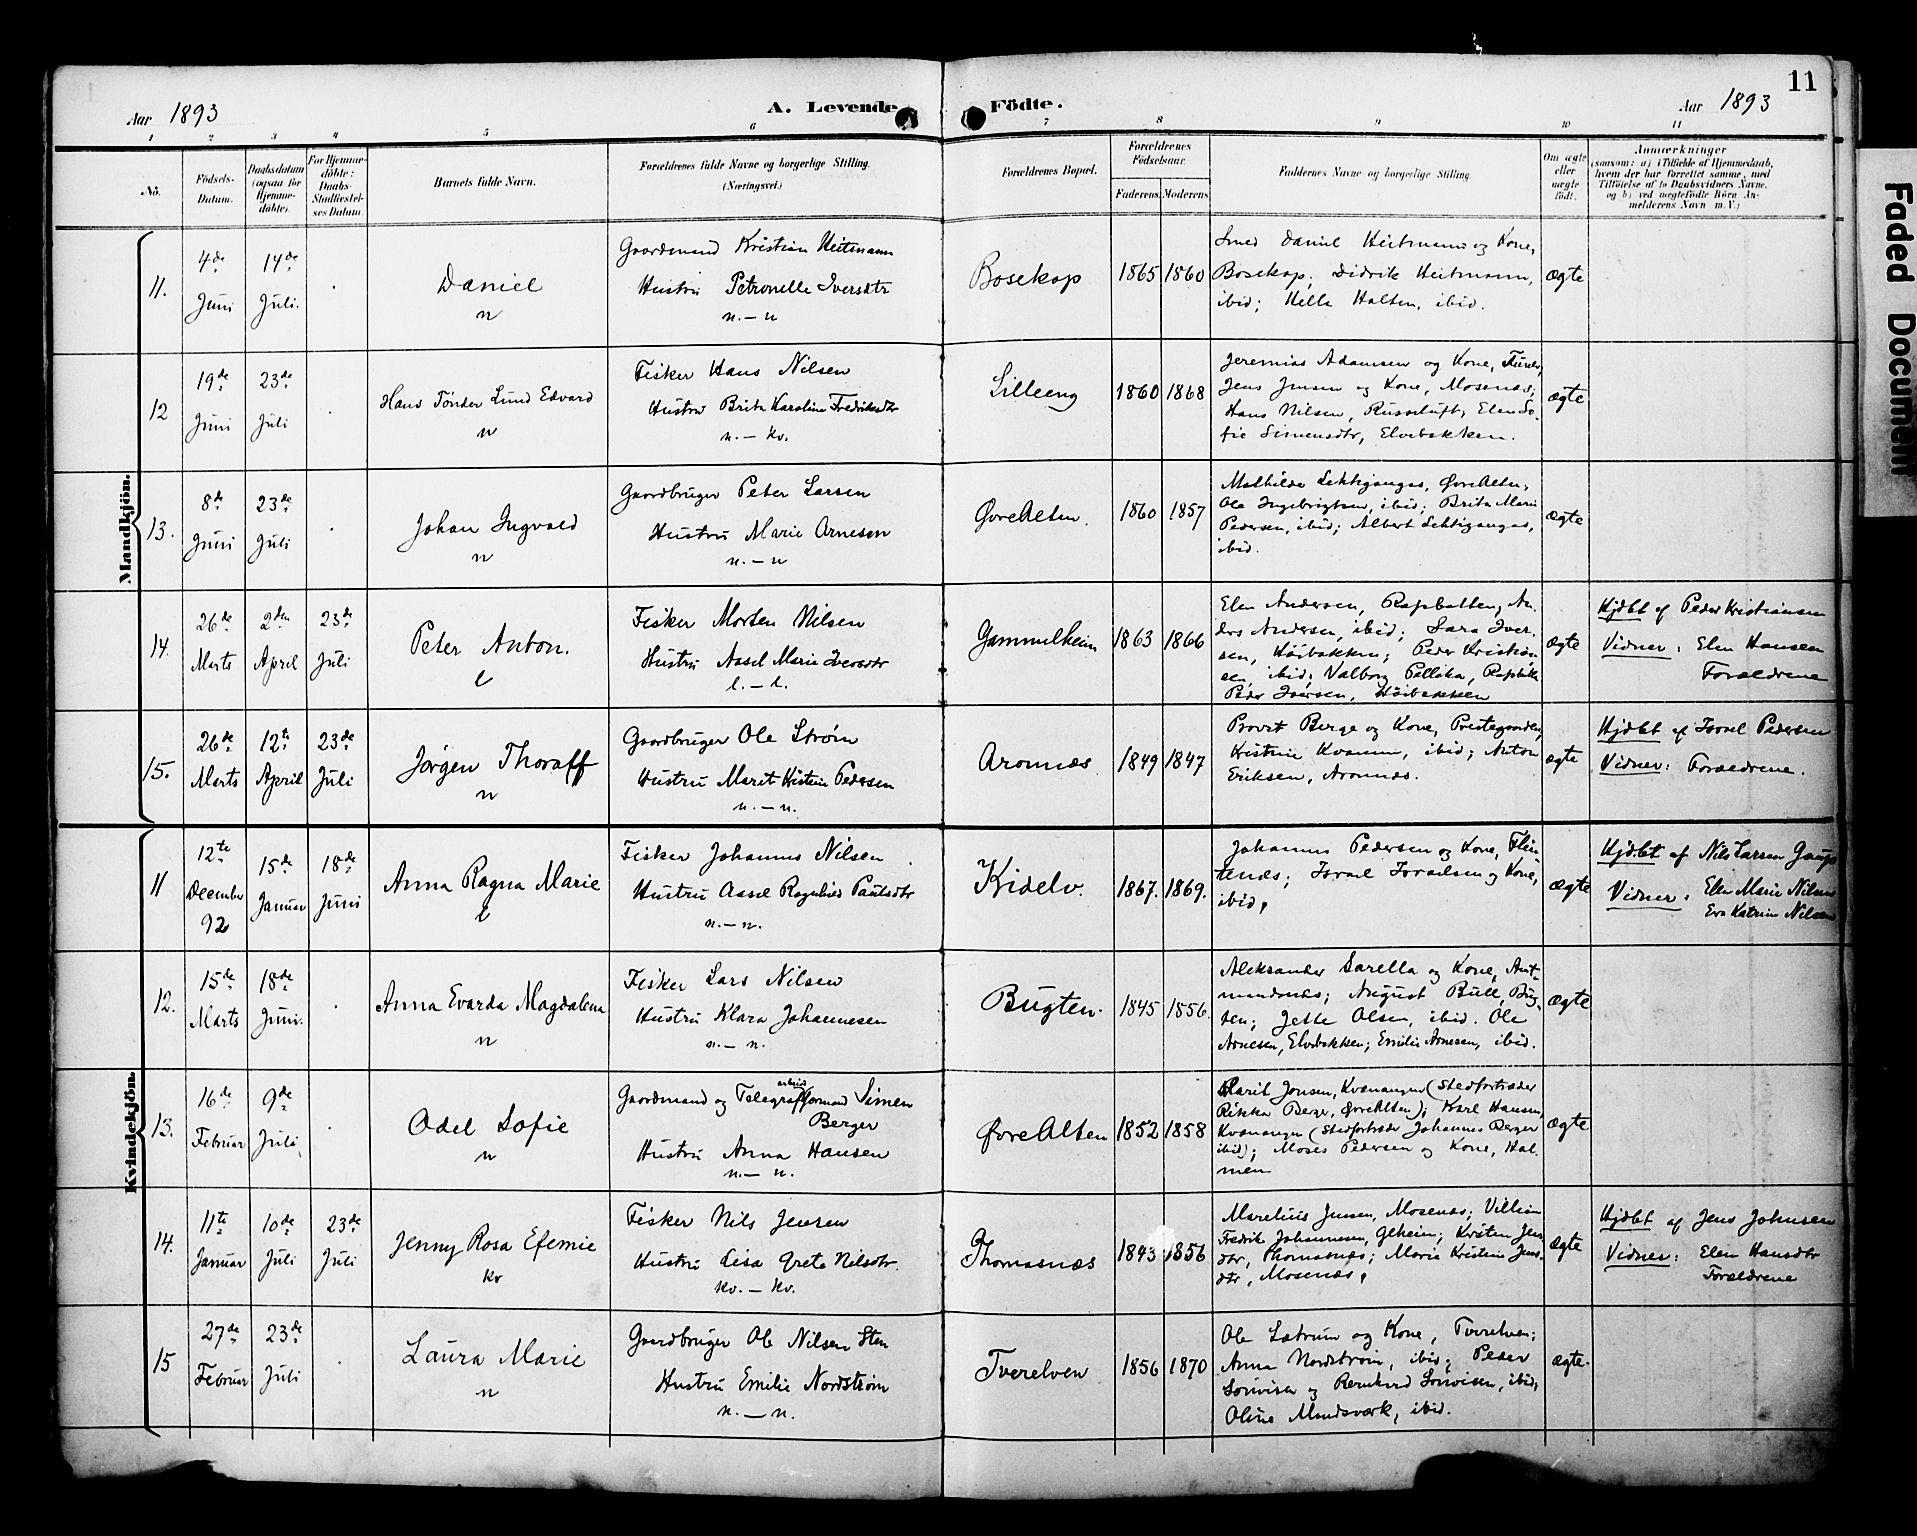 11
Aar 1893
A. Levende
Födte.
Aar 1893
1 2 3 4 5 6 7 8 9 10 11
No.
Födsels-
Datum.
Daabsdatum
(ogsaa for
Hjemme-
döbte).
For Hjemme-
döbte:
Daabs-
Stadfæstel-
ses Datum.
Barnets fulde Navn.
Forældrenes fulde Navne og borgerlige Stilling.
(Næringsvei.)
Forældrenes Bopæl.
Forældrenes
Födselsaar.
Faderens.
Moderens.
Faddernes Navne og borgerlige Stilling.
Om ægte
eller
uægte
födt.
Anmærkninger
(saasom: a) i Tilfælde af Hjemmedaab,
hvem der har forrettet samme, med
Tilföielse af to Daabsvidners Navne,
og b) ved uægtefödte Börn An-
melderens Navn m. V.)
Mandkjön.
11.
4de Juni
14de Juli.
Daniel
n
Gaardmand Kristian Heitmann
Hustru Petronelle Iversdtr
n. – n
Bosekop
1865 1860
Smed Daniel Heitmann og Kone,
Bosekop; Didrik Heitmann,
ibid; Helle Halten, ibid.
ægte
12
19de Juni
23de Juli
Hans Tönder Lund Edvard
n
Fisker Hans Nilsen
Hustru Brita Karoline Fredriksdtr
n. – kv.
Lilleeng
1860 1868
Jeremias Adamsen og Kone,
Jens Jensen og Kone, Mosenæs;
Hans Nilsen, Russeluft; Elen So-
fie Simensdtr, Elvebakken.
ægte
13.
8de Juni
23de Juli
Johan Ingvald
n
Gaardbruger Peter Larsen
Hustru Marie Arnesen
n. – n
ØvreAlten.
1860 1857
Mathilde Lektigangas, ØvreAlten;
Ole Ingebrigtsen, ibid; Brita Marie
Pedersen, ibid; Albert Lektigangas,
ibid.
ægte
14.
26de Marts
2den April
23de Juli
Peter Anton.
l
Fisker Morten Nilsen
Hustru Assel Marie Iversdtr
l. – l.
Gammelheim
1863 1866
Elen Andersen, Rapbatten; An-
ders Andersen, ibid; Sara Iver-
sen, Höibakken; Peder Kristian-
sen, ibid; Valborg Pellika,
Peder Iversen, Höibakken
ægte
Hjdbt af Peder Kristiansen
Vidner: Elen Hansen
Forældrene
15.
26de Marts
12te April
23de Juli
Jørgen Thoralf
n
Gaardbruger Ole Strøm
Hustru Maret Kristine Pedersen
n. – n.
Aronnæs
1849 1847
Provst Berge og Kone, Prestegaarden,
Kristine Kvamm, ibid; Anton
Eriksen, Aronnæs.
ægte
Hjdbt af Israel Pedersen
Vidner: Forældrene.
Kvindekjön.
11
12te December 92
15de Januar
18de Juni
Anna Ragna Marie
l
Fisker Johannes Nilsen
Hustru Assel Paulsdtr
n. – n.
Kidelv.
1867. 1869.
Johannes Pedersen og Kone, Flin-
tenæs; Israel Israelsen og Kone,
ibid,
ægte
Hjdbt af Nils Larsen Gaup
Vidner: Elen Marie Nilsen
Eva Katrine Nilsen
12.
15de Marts
18de Juni.
Anna Evarda Magdalena
n
Fisker Lars Nilsen
Hustru Klara Johannesen
n. – n.
Bugten.
1845 1856.
Aleksander Sarella og Kone, Aut-
mendsnæs; August Bull, Bug-
ten; Jette Olsen, ibid. Ole
Arnesen, Elvebakken; Emilie Arnesen, ibid.
ægte
13.
16de Februar
9de Juli,
Odel Sofie
n
Gaardmand og Telegrafarbeidformand Simen
Berger
Hustru Anna Hansen
n. – n.
ØvreAlten
1852 1858
Marit Jonsen, Kvænangen (Stedfortræder
Rikka Berger, ØvreAlten); Karl Hansen,
Kvænangen (Stedfortræder Johannes Berger
ibid); Moses Pedersen og Kone, Hol-
men
ægte
14.
11te Januar
10de Juli
23de Juli
Jenny Rosa Efemie
kv
Fisker Nils Jensen
Hustru Lisa Grete Nilsdtr.
kv. – kv.
Thomasnæs
1843 1856
Marelius Jensen, Mosenæs; Villiam
Fredrik Johannesen, Geheim; Kristen Jens-
dtr, Thomasnæs; Marie Kristine Jens-
dtr, Mosenæs,
ægte
Hjdbt af Jens Johnsen
Vidner: Elen Hansdtr
Forældrene
15
27de Februar
23de Juli
Laura Marie
n
Gaardbruger Ole Nilsen Sten
Hustru Emilie Nordstrøm
n. – n.
Tverelven
1856 1870
Ole Sætrum og Kone, Tverelven;
Anna Nordstrøm, ibid; Peder
og Bernhard ibid;
Oline Mandsværk, ibid.
ægte.
Faded Document